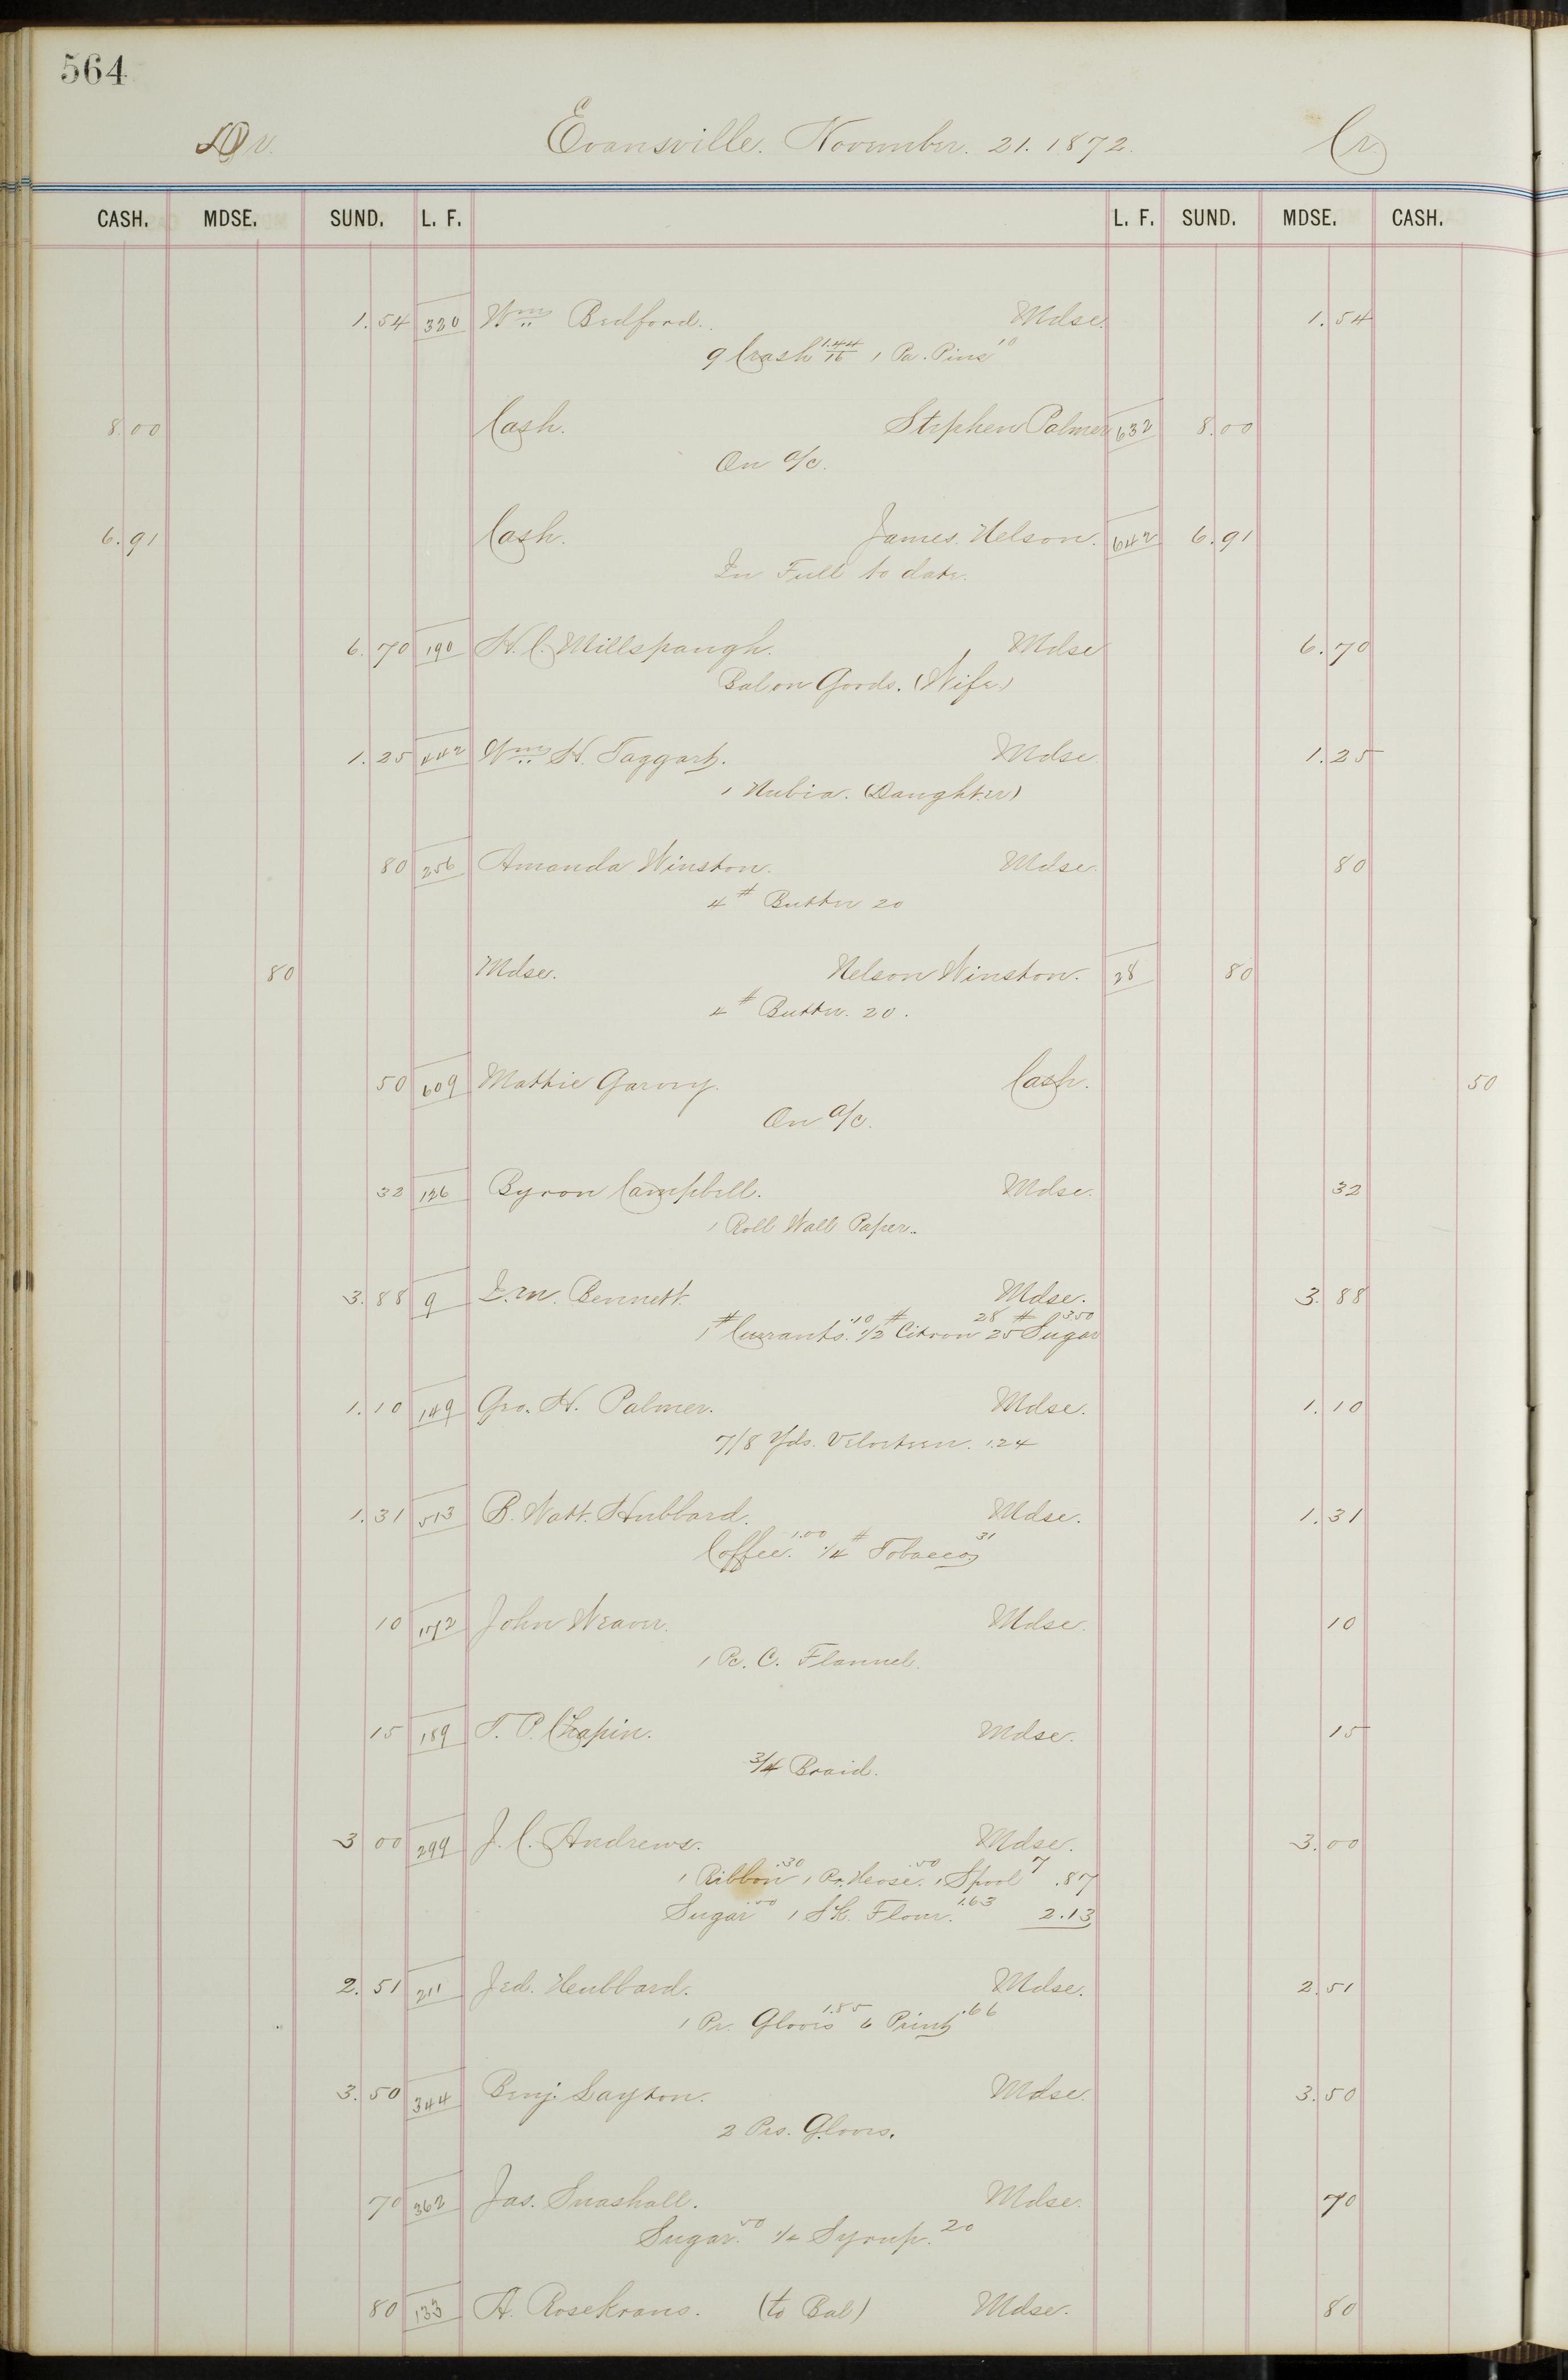 564
Dr. Evansville. November. 21. 1872. Cr
CASH. MDSE. SUND. L. F. L. F. SUND. MDSE. CASH.
1.54 320 Wm Bedford. Mdse. 1.54
9 Crash 1.44/16 1 Pa. Pins 10
8.00 Cash. Stephen Palmer 632 8.00
On a/c.
6.91 Cash. James Nelson. 642 6.91
In Full to date.
6.70 190 H. C. Millspaugh. Mdse 6.70
Bal on Goods. (Wife)
1.25 442 Wm H. Taggart. Mdse 1.25
1 Nubia. (Daughter)
80 256 Amanda Winston. Mdse. 80
4# Butter 20
80 Mdse. Nelson Winston. 28 80
4# Butter. 20.
50 609 Mattie Garvey. Cash. 50
On a/c.
32 126 Byron Campbell. Mdse. 32
1 Roll Wall Paper.
3.88 9 I. M. Bennett. Mdse. 3.88
1# Currants. .10 1/2# Citron 28 25# Sugar 3.50
1.10 149 Geo. H. Palmer. Mdse. 1.10
7/8 Yds. Velveteen. 1.24
1.31 513 B. Watt. Hubbard. Mdse. 1.31
Coffee. 1.00 1/4# Tobacco 31
10 172 John Weaver. Mdse. 10
1 Pc. C. Flannel.
15 159 T. P. Chapin. Mdse. 15
3/4 Braid.
3 00 299 J. C. Andrews. Mdse. 3.00
1 Ribbon .30 1 Pr. Hose. .50 1 Spool 7 .87
Sugar .50 1 Sk. Flour. 1.63 2.13
2.51 211 Jed. Hubbard. Mdse. 2.51
1 Pr. Gloves 1.85 6 Print .66
3.50 344 Benj. Layton. Mdse. 3.50
2 Prs. Gloves.
70 362 Jas. Snashall. Mdse. 70
Sugar. 50 1/4 Syrup. 20
80 133 A. Rosekrans. (to Bal) Mdse. 80